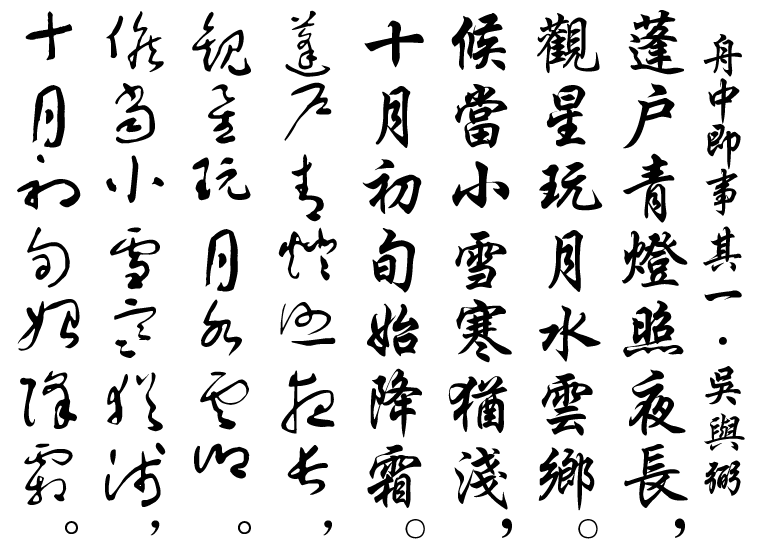 舟中即事其一·吳與弼
蓬戶青燈照夜長，
觀星玩月水雲鄉。
候當小雪寒猶淺，
十月初旬始降霜。
蓬戶青燈照夜長，
觀星玩月水雲鄉。
候當小雪寒猶淺，
十月初旬始降霜。